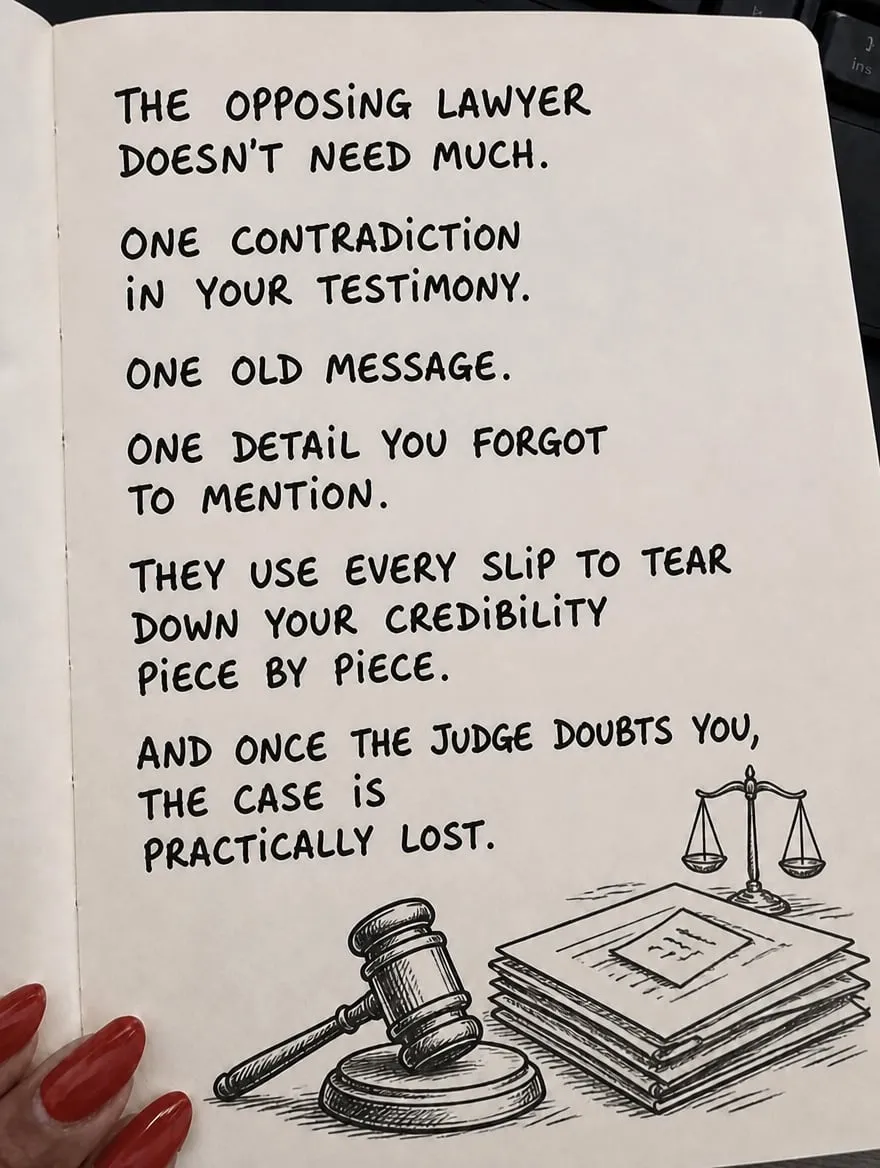 THE OPPOSING LAWYER
DOESN'T NEED MUCH.
ONE CONTRADICTION
IN YOUR TESTIMONY.
ONE OLD MESSAGE.
ONE DETAIL YOU FORGOT
TO MENTION.
THEY USE EVERY SLIP TO TEAR
DOWN YOUR CREDIBILITY
PIECE BY PIECE.
AND ONCE THE JUDGE DOUBTS YOU,
THE CASE IS
PRACTICALLY LOST.
}
ins